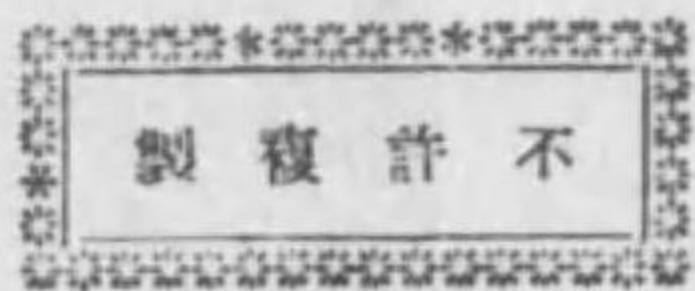 不許複製